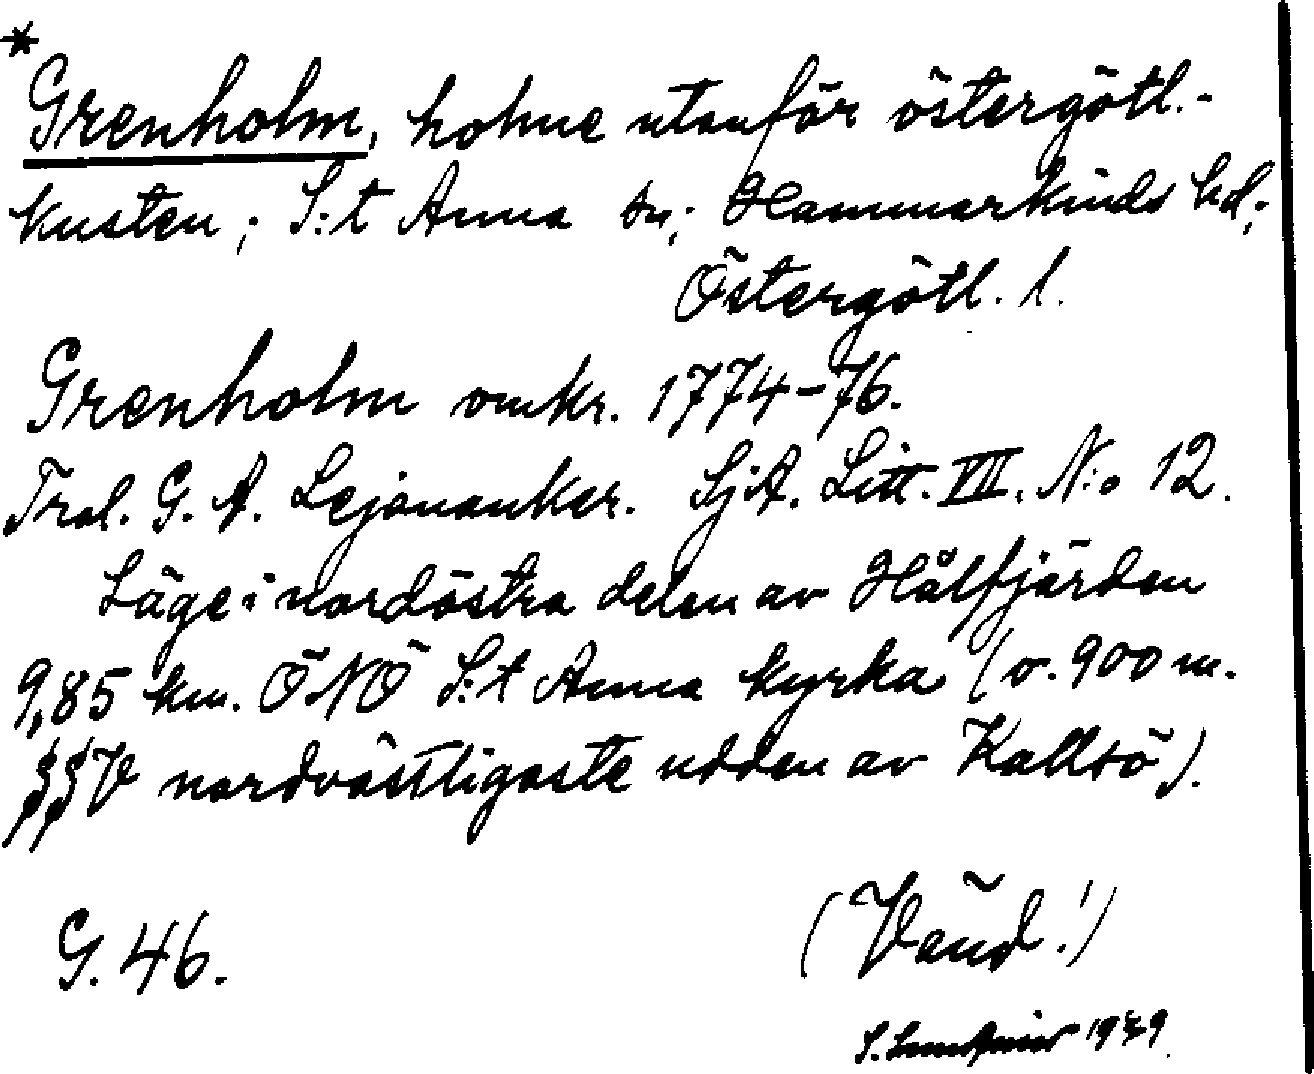 *
Grenholm, holme utanför östergötl.-
kusten; S:t Anna sn; Hammarkinds hd;
Östergötl. l.
Grenholm omkr. 1774-76.
Trol. G. A. Lejonanker. SjA. Litt. VII. N:o 12.
Läge i nordöstra delen av Hålfjärden
9,85 km. ÖNÖ S:t Anna kyrka (o. 900 m.
SSV nordvästligaste udden av Kallsö).
G. 46.
(Vänd!)
S. 1949